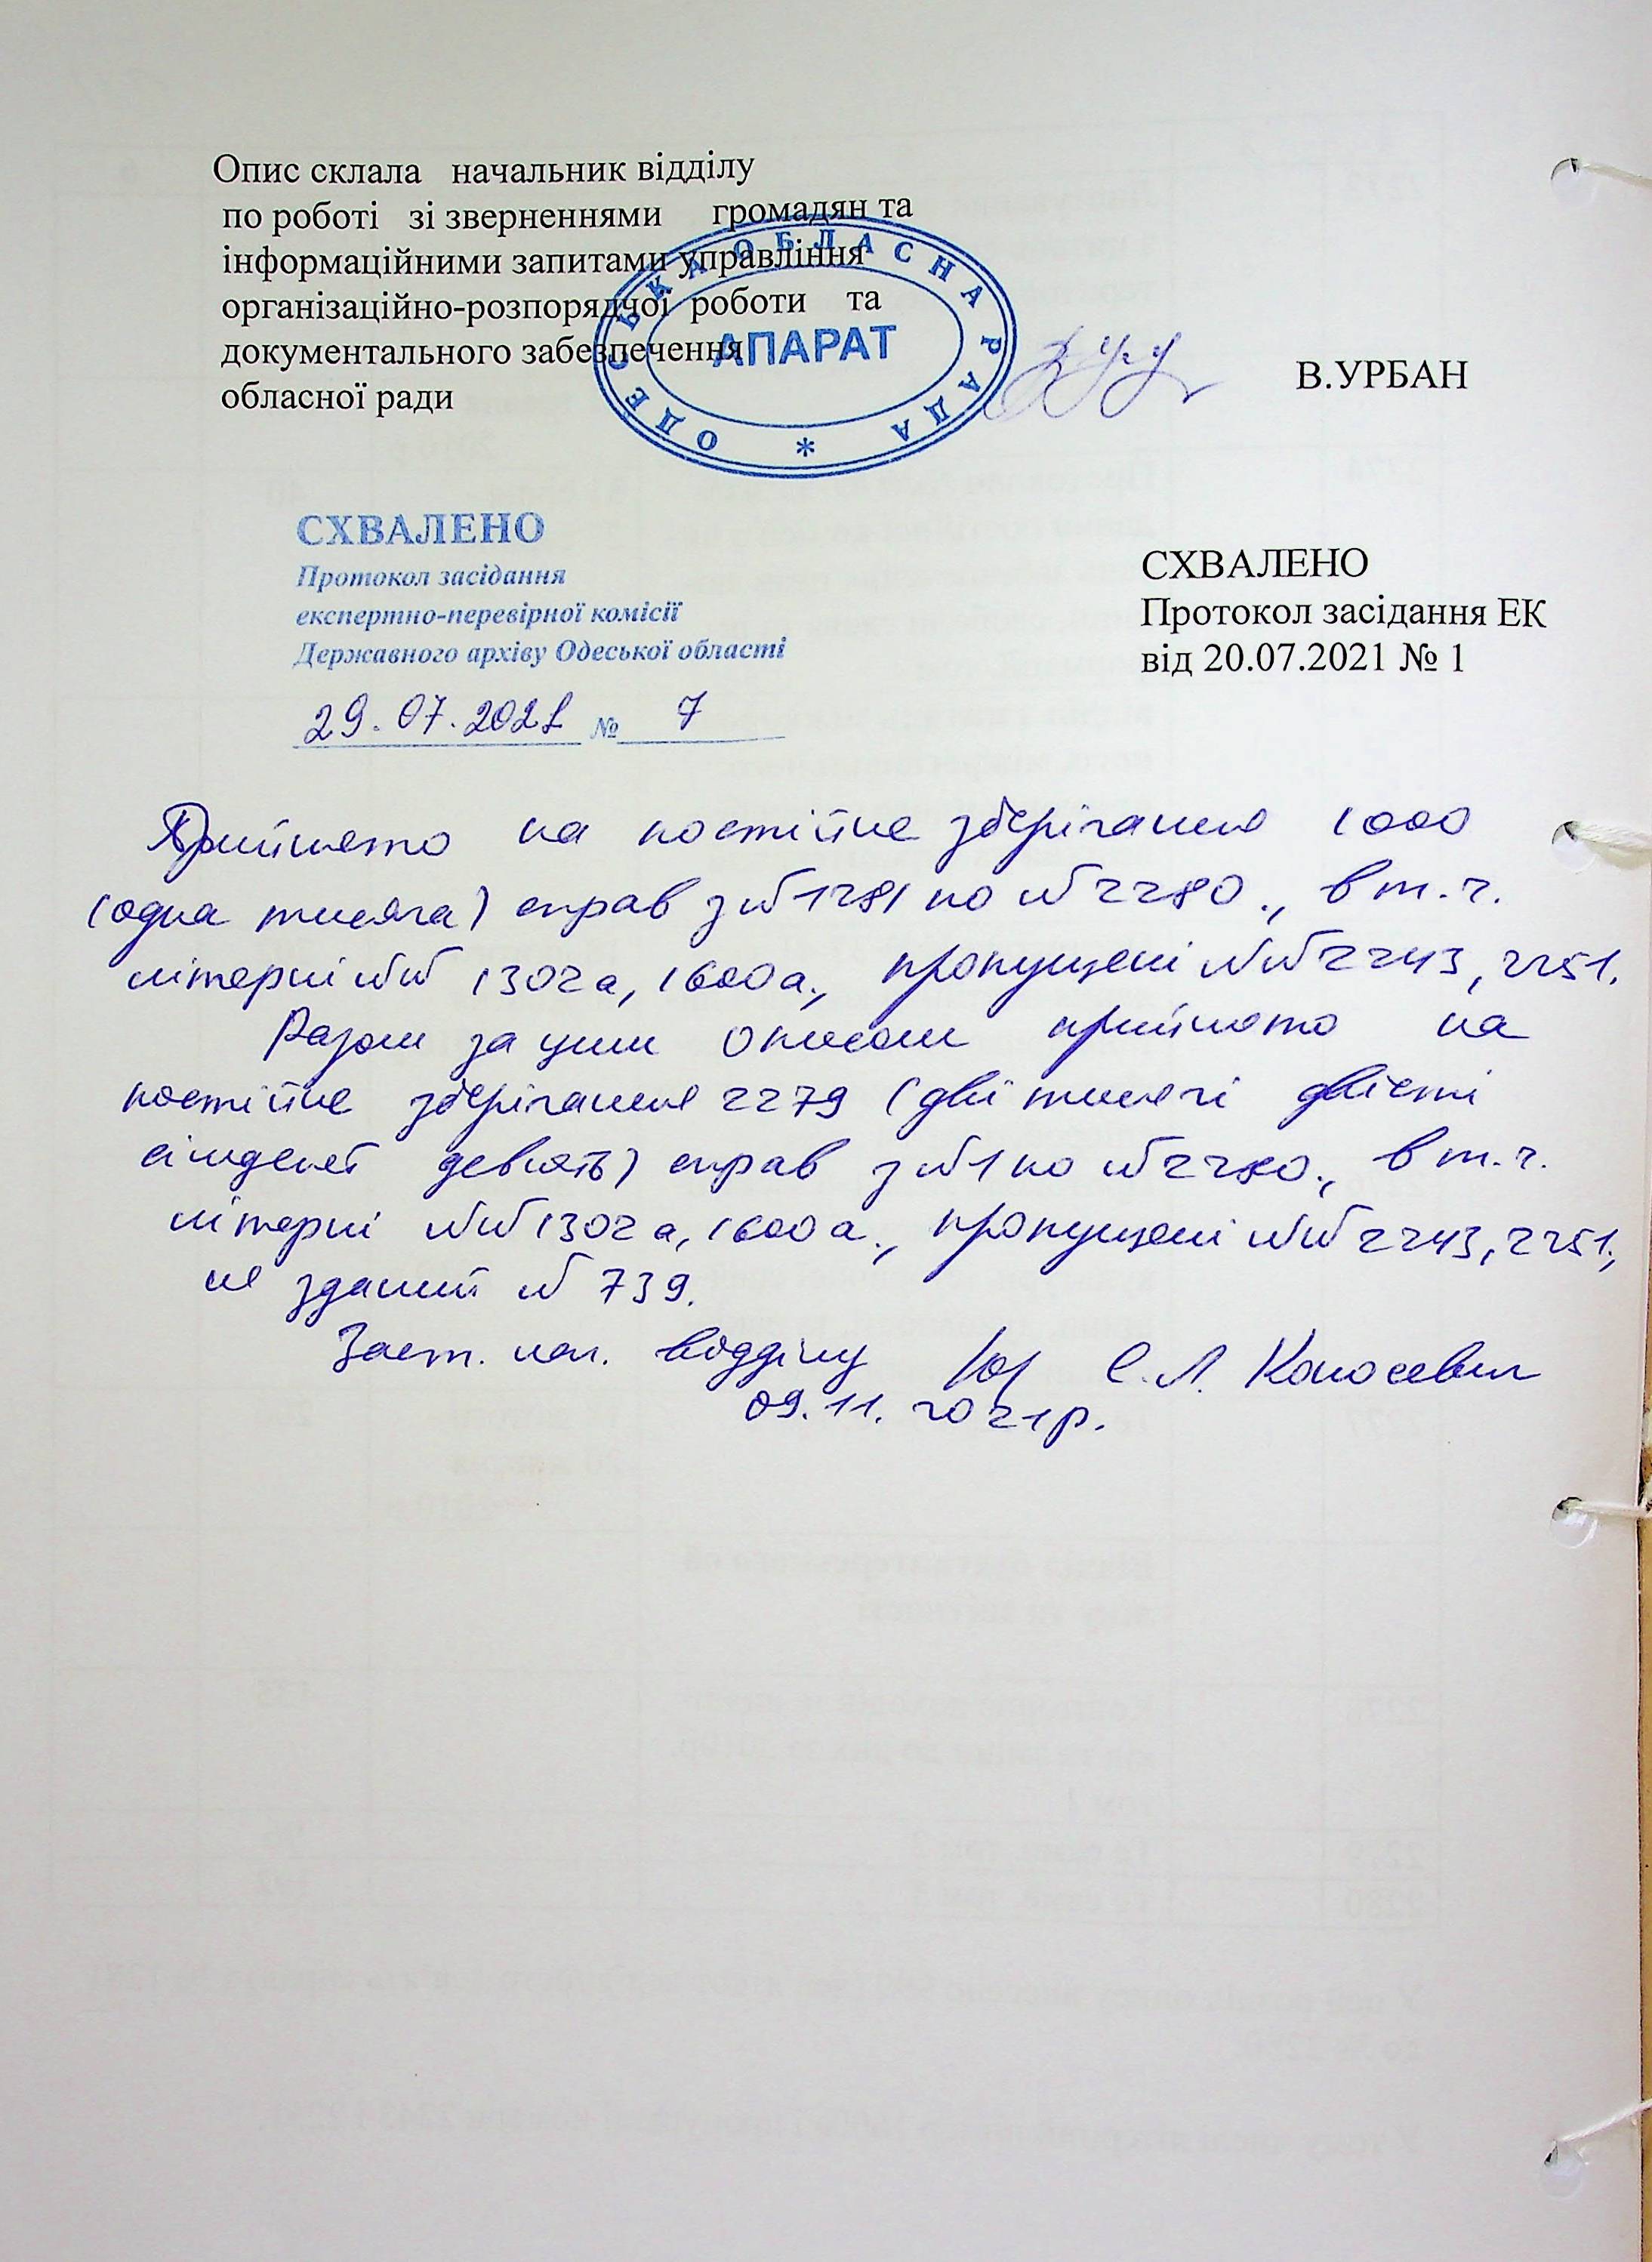 Опис склала начальник відділу
по роботі зі зверненнями громадян та
інформаційними запитами управління
організаційно-розпорядчої роботи та
документального забезпечення
обласної ради
В.УРБАН
ОДЕСЬКА ОБЛАСНА РАДА *
АПАРАТ
СХВАЛЕНО
Протокол засідання
експертно-перевірної комісії
Державного архіву Одеської області
29.07.2021 № 7
СХВАЛЕНО
Протокол засідання ЕК
від 20.07.2021 № 1
Прийнято на постійне зберігання 1000
(одна тисяча) справ з №1281 по №2280., в т.ч.
літерні №№ 1302а, 1600а., пропущені №№2243, 2251.
Разом за цим описом прийнято на
постійне зберігання 2279 (дві тисячі двісті
сімдесят девять) справ з №1 по №2280., в т.ч.
літерні №№1302а, 1600а., пропущені №№2243, 2251.,
не зданий № 739.
Заст. нач. відділу С.Л. Коносевич
09.11.2021р.